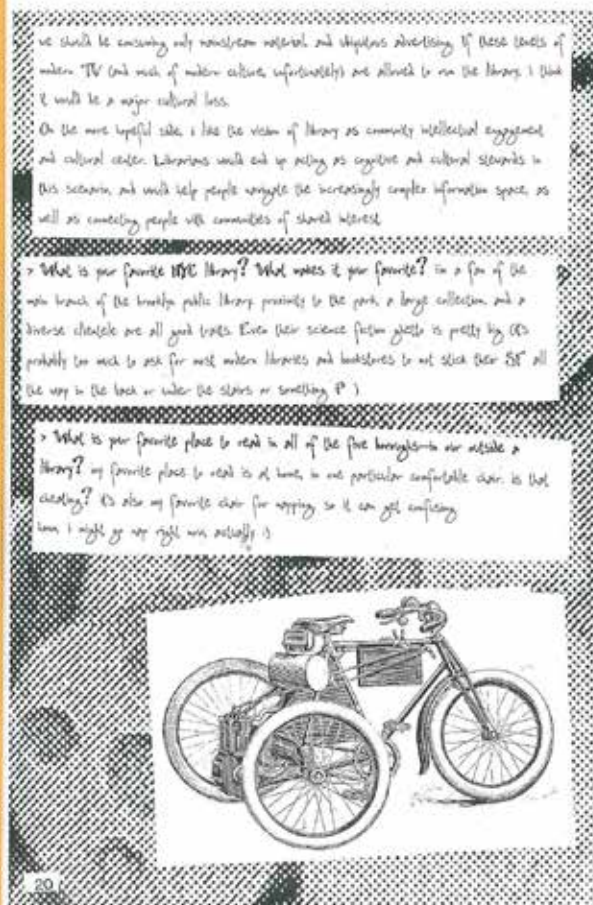 we should be consuming only mainstream material and ubiquitous advertising. If these levels of
modern TV (and much of modern culture, unfortunately) are allowed to run the library, i think
it would be a major cultural loss.
On the more hopeful side, i like the vision of library as community intellectual engagement
and cultural center. Librarians would end up acting as cognitive and cultural stewards in
this scenario, and would help people navigate the increasingly complex information space, as
well as connecting people with communities of shared interest.
> What is your favorite NYC library? What makes it your favorite? i'm a fan of the
main branch of the brooklyn public library. proximity to the park, a large collection, and a
diverse clientele are all good traits. Even their science fiction ghetto is pretty big (it's
probably too much to ask for most modern libraries and bookstores to not stick their SF all
the way in the back or under the stairs or something :P )
> What is your favorite place to read in all of the five boroughs—in our outside a
library? my favorite place to read is at home, in one particular comfortable chair. is that
cheating? it's also my favorite chair for napping, so it can get confusing.
hmm, i might go nap right now, actually :)
20